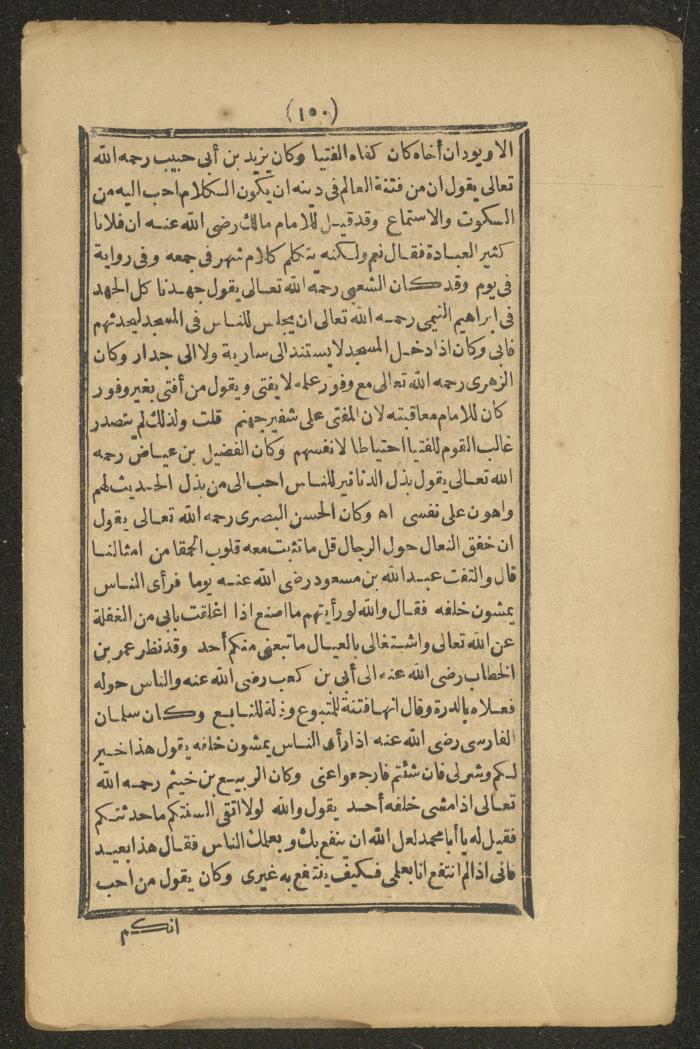 (١٥٠)
الا ويود ان أخاه كان كفاه الفتيا وكان يزيد بن أبى حبيب رحمه الله
تعالى يقول ان من فتنة العالم فى دينه ان يكون الكلام احب اليه من
السكوت والاستماع وقد قيل للامام مالك رضى الله عنه ان فلانا
كثير العبادة فقال نعم ولكنه يتكلم كلام شهر فى جمعه وفى رواية
فى يوم وقد كان الشعبى رحمه الله تعالى يقول جهدنا كل الجهد
فى ابراهيم التيمى رحمه الله تعالى ان يجلس للناس فى المسجد ليحدثهم
فابى وكان اذا دخل المسجد لا يستند الى سارية ولا الى جدار وكان
الزهرى رحمه الله تعالى مع وفور علمه لا يفتى ويقول من أفتى بغير وفور
كان للامام معاقبته لان المفتى على شفير جهنم قلت ولذلك لم يتصدر
غالب القوم للفتيا احتياطا لانفسهم وكان الفضيل بن عياض رحمه
الله تعالى يقول بذل الدنانير للناس احب الى من بذل الحديث لهم
واهون على نفسى اه وكان الحسن البصرى رحمه الله تعالى يقول
ان خفق النعال حول الرجال قل ما تثبت معه قلوب الحمقا من امثالنا
قال والتفت عبد الله بن مسعود رضى الله عنه يوما فرأى الناس
يمشون خلفه فقال والله لو رأيتهم ما اصنع اذا اغلقت بابى من الغفلة
عن الله تعالى واشتغالى بالعيال ما تبعنى منكم أحد وقد نظر عمر بن
الخطاب رضى الله عنه الى أبى بن كعب رضى الله عنه والناس حوله
فعلاه بالدرة وقال انها فتنة للمتبوع وذلة للتابع وكان سلمان
الفارسى رضى الله عنه اذا رأى الناس يمشون خلفه يقول هذا خير
لكم وشر لى فان شئتم فارجعوا عنى وكان الربيع بن خيثم رحمه الله
تعالى اذا مشى خلفه أحد يقول والله لولا اتقى السنتكم ما حدثتكم
فقيل له يا أبا محمد لعل الله ان ينفع بك وبعملك الناس فقال هذا بعيد
فانى اذا لم انتفع انا بعلمى فكيف ينتفع به غيرى وكان يقول من احب
انكم